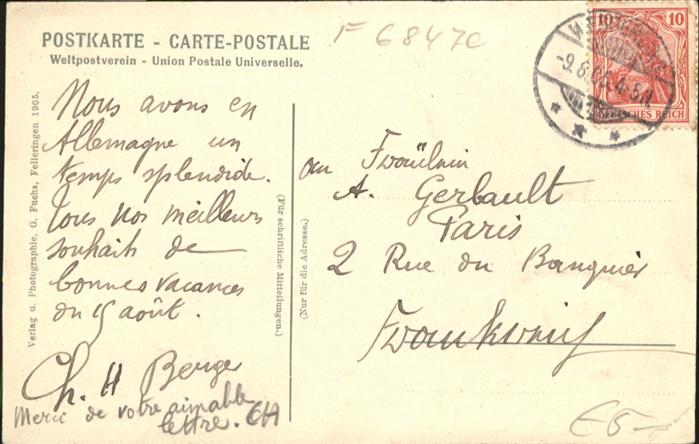 POSTKARTE - CARTE-POSTALE
Weltpostverein - Union Postale Universelle.
F 6847C
10 10
DEUTSCHES REICH
-9.8.06.4-5N.
Verlag u. Photographie. G. Fuchs, Felleringen 1905.
Nous avons en
Allemagne un
temps splendide.
Tous nos meilleurs
souhaits de
bonnes vacances
du 15 août.
Ch. H Berger
Merci de votre aimable
lettre. CH
(Für schriftliche Mitteilungen.)
(Nur für die Adresse.)
an Fräulein
A. Gerbault
Paris
2 Rue du Banquier
Frankreich
€5-